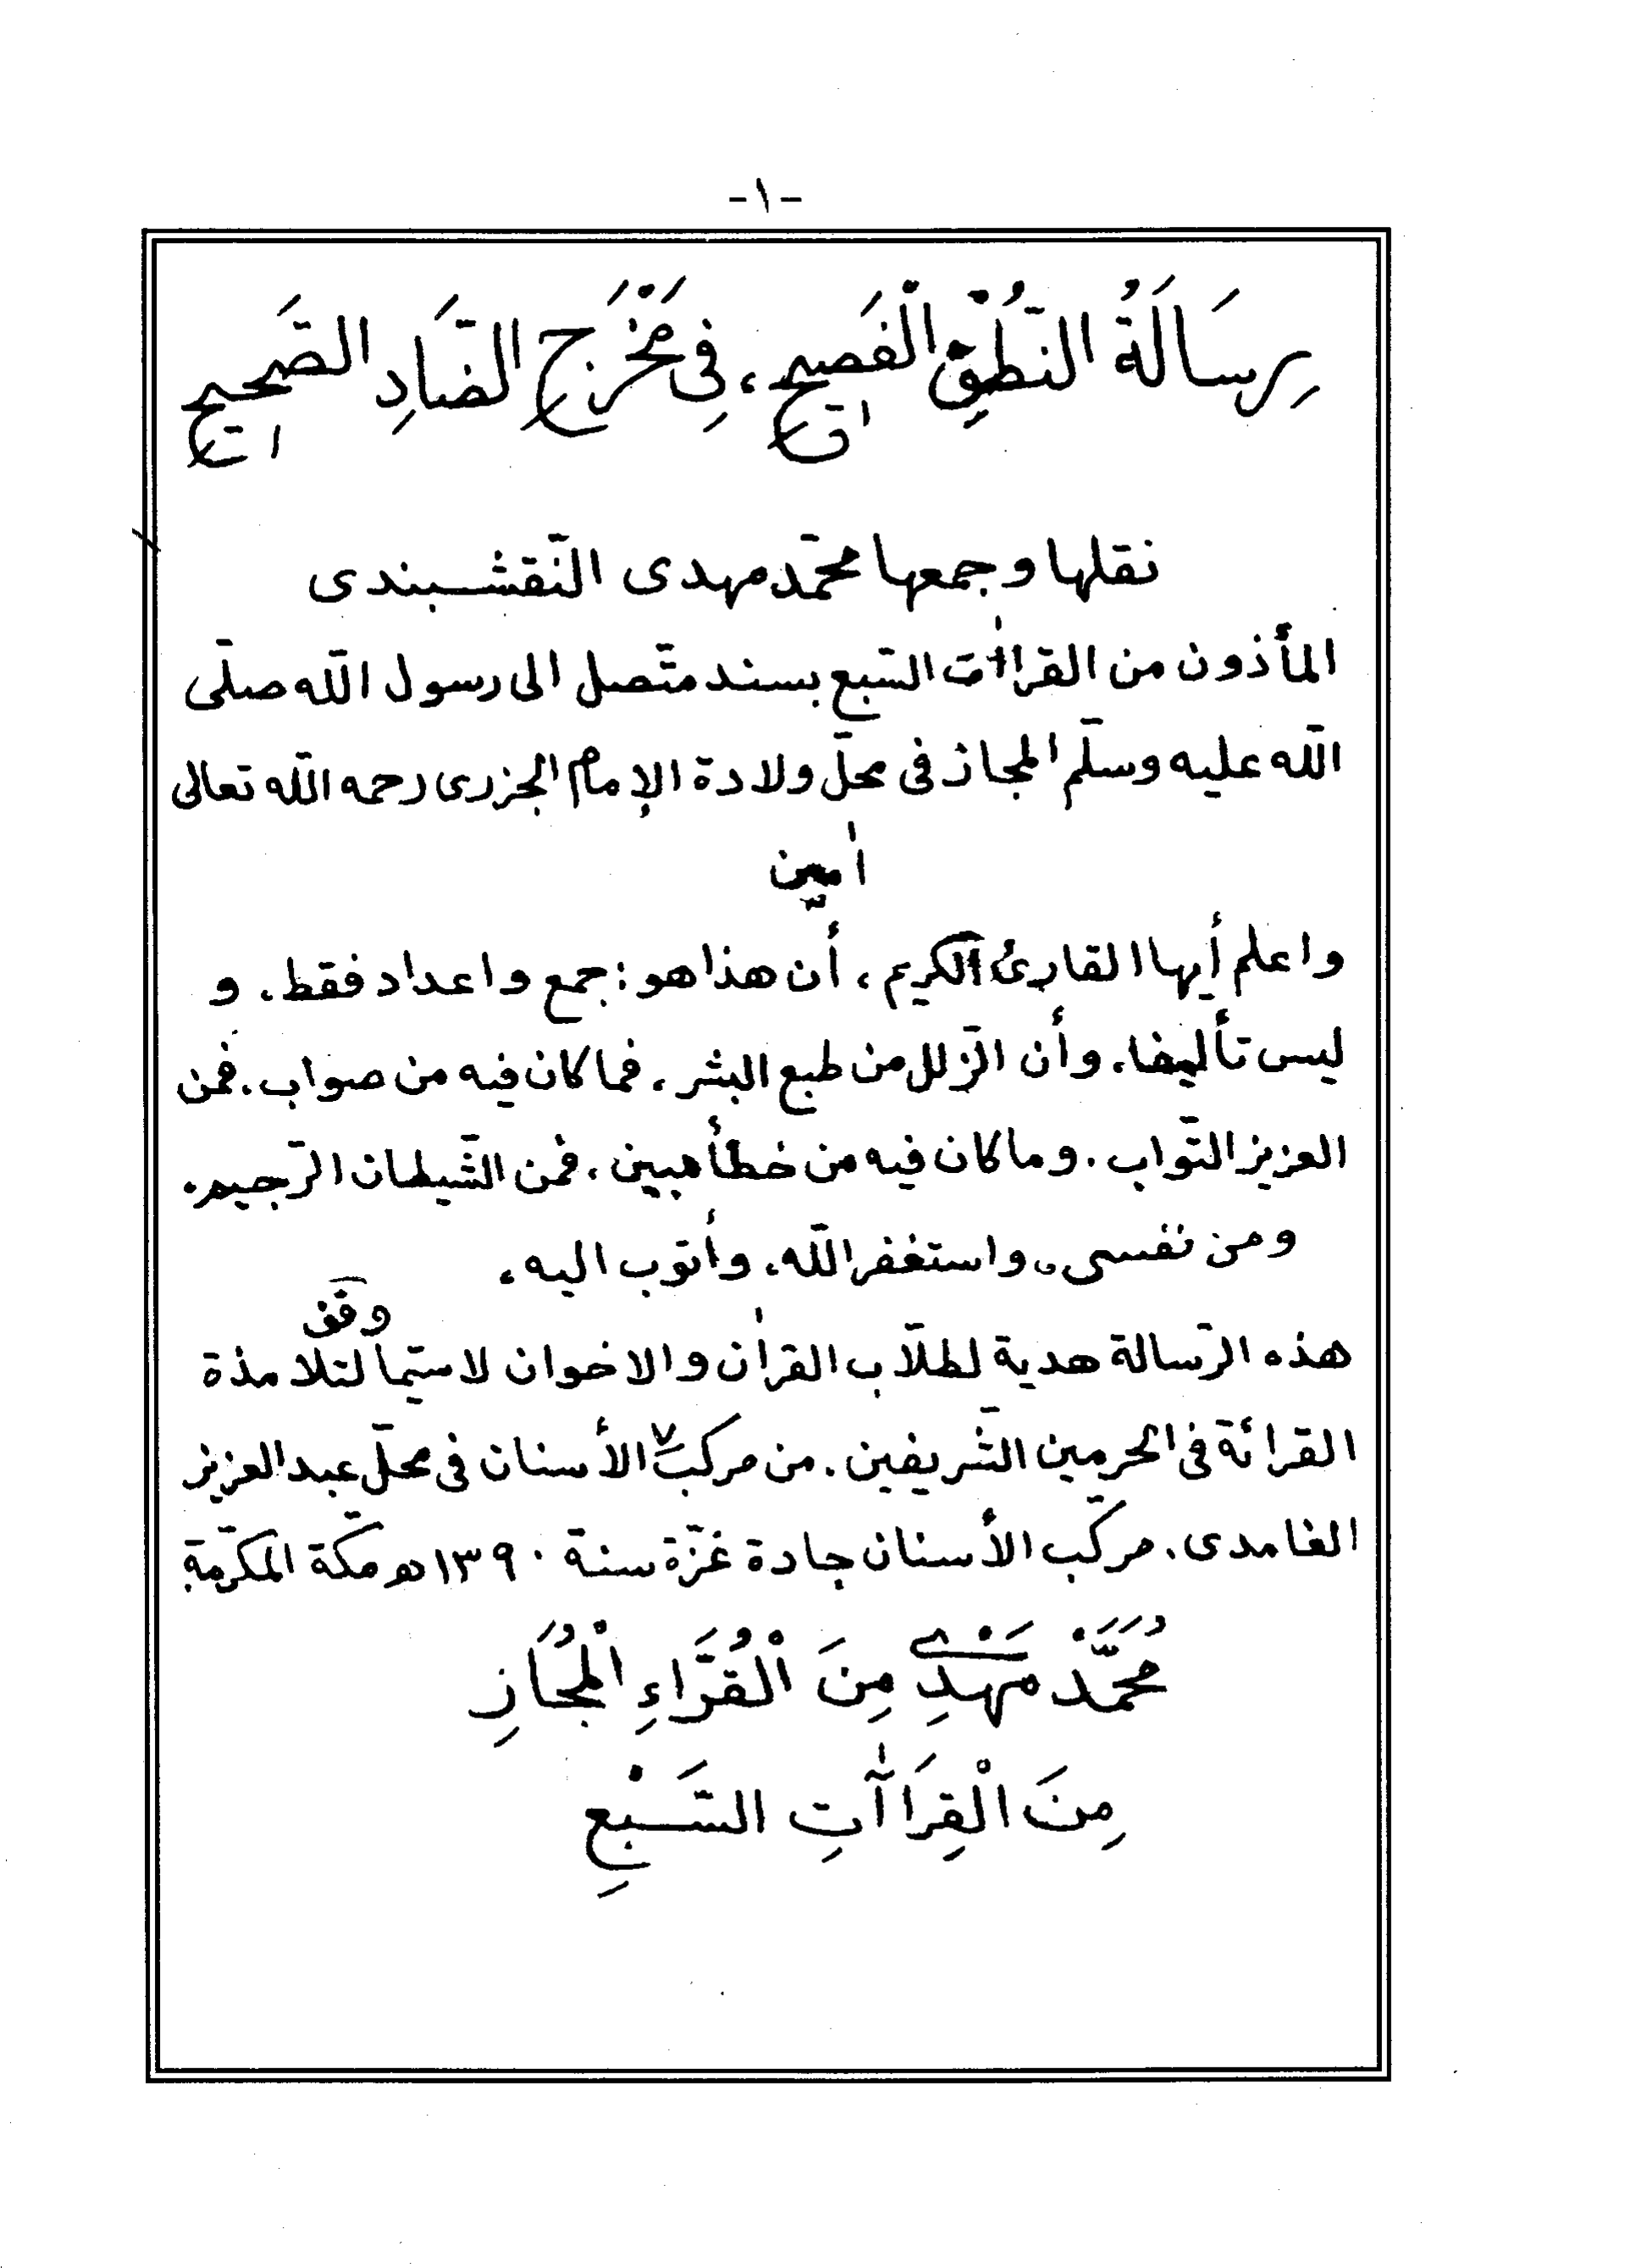 -١-
رِسَالَةُ النُّطْقِ الْفَصِيحِ، فِى مَخْرَجِ الضَّادِ الصَّحِيحِ
نقلها وجمعها محمّد مهدى النّقشبندى
المأذون من القراات السّبع بسند متّصل الى رسول الله صلّى
الله عليه وسلّم المجاز فى محلّ ولادة الإمام الجزرى رحمه الله تعالى
اٰمين
واعلم أيها القارئ الكريم، أن هذا هو: جمع واعداد فقط. و
ليس تأليفا. وأن الزّلل من طبع البشر. فما كان فيه من صواب. فمن
العزيز التّواب. وما كان فيه من خطأ مبين، فمن الشّيطان الرّجيم.
ومن نفسى. واستغفر الله، وأتوب اليه،
وقف
هذه الرّسالة هدية لطلّاب القراٰن والاخوان لاسيّما لتلامذة
القرائة فى الحرمين الشّريفين. من مركب الأسنان فى محلّ عبد العزيز
الغامدى. مركّب الأسنان جادة غزّة سنة ١٣٩٠ هـ مكّة المكرّمة
مُحَمَّدْ مَهْدِي مِنَ الْقُرَّاءِ الْمُجَازِ
مِنَ الْقِرَاآتِ السَّبْعِ